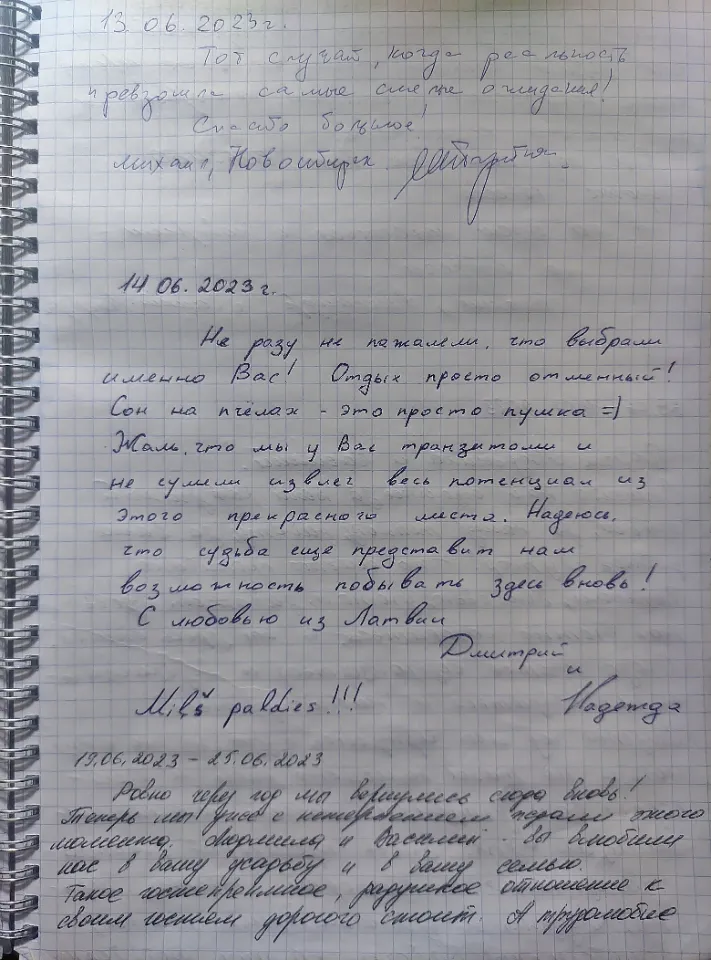 13.06.2023г.
Тот случай, когда реальность
превзошла самые смелые ожидания!
Спасибо большое!
Михаил, Новосибирск.
14.06.2023г.
Не разу не пажалели, что выбрали
именно Вас! Отдых просто отменный!
Сон на пчёлах - это просто пушка =)
Жаль, что мы у Вас транзитом и
не сумели извлеч весь потенциал из
этого прекрасного места. Надеюсь,
что судьба еще представит нам
возможность побывать здесь вновь!
С любовью из Латвии
Дмитрий
и
Надежда
Miļš paldies!!!
19.06.2023 - 25.06.2023
Ровно через год мы вернулись сюда вновь!
Теперь мы уже с нетерпением ждали этого
момента. Людмила и Василий - вы влюбили
нас в вашу усадьбу и в вашу семью.
Такое гостеприимное, радушное отношение к
своим гостям дорогого стоит. А трудолюбие